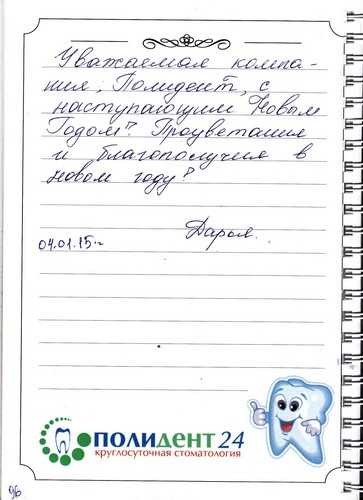 Уважаемая компа-
ния „Полидент", с
наступающим Новым
Годом! Процветания
и благополучия в
новом году!
Дарья.
04.01.15г.
ПОЛИДЕНТ 24
круглосуточная стоматология
96